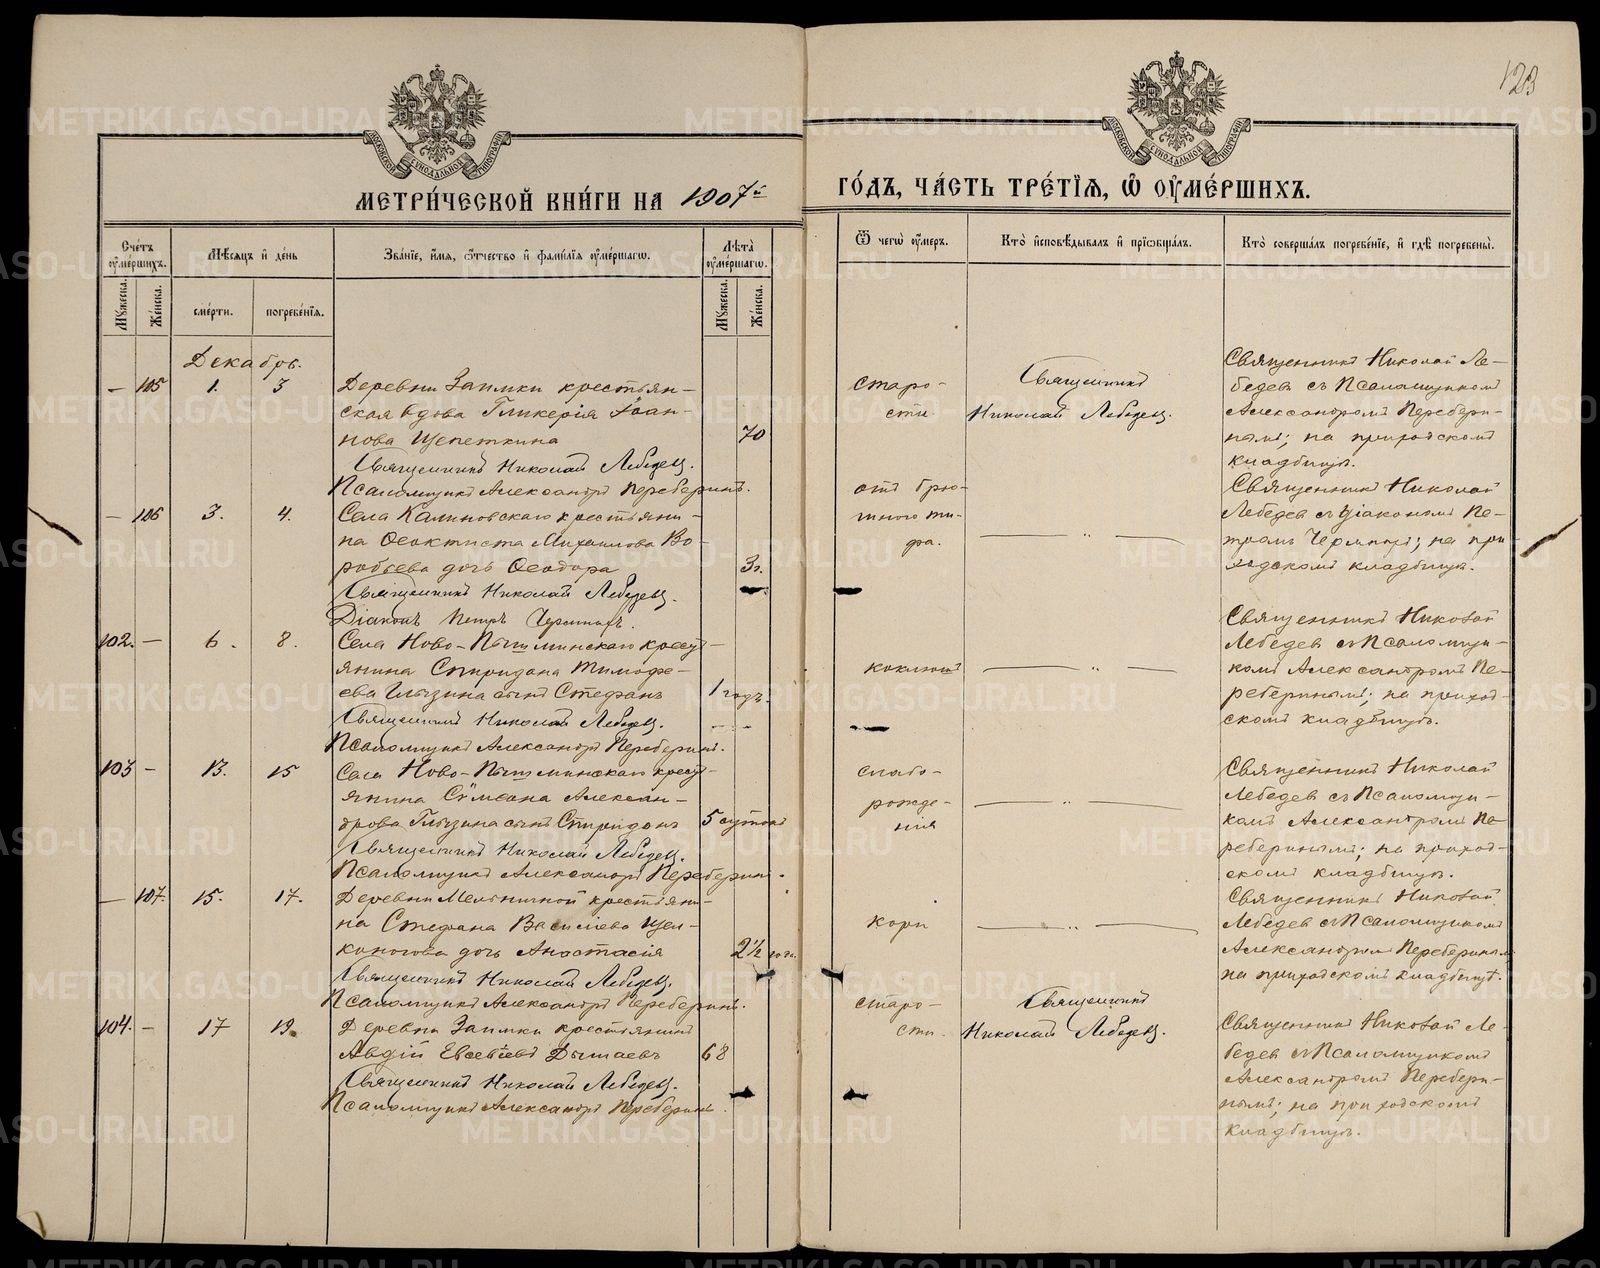 123
МЕТРИ́ЧЕСКОЙ КНИ́ГИ НА 1907й
ГО́ДЪ, ЧА́СТЬ ТРЕ́ТІѦ, Ѡ ОУ҆МЕ́РШИХЪ.
Сче́тъ оу҆ме́ршихъ.
Мꙋ́жеска.
Же́нска.
Мѣ́сѧцъ и҆ де́нь
сме́рти.
погребе́нїѧ.
Зва́нїе, и҆́мѧ, ѻ҆́тчество и҆ фами́лїѧ оу҆ме́ршагѡ.
Лѣ́та оу҆ме́ршагѡ.
Мꙋ́жеска.
Же́нска.
Ѿ чегѡ̀ оу҆́меръ.
Кто̀ и҆сповѣ́дывалъ и҆ прїѡбща́лъ.
Кто̀ соверша́лъ погребе́нїе, и҆ гдѣ̀ погребены̀.
Декабрь.
– 105 1. 3
Деревни Заимки крестьян-
ская вдова Гликерія Іоан-
нова Щепеткина
70
Священникъ Николай Лебедевъ.
Псаломщикъ Александръ Переберинъ.
старо-
сти
Священникъ
Николай Лебедевъ.
Священникъ Николай Ле-
бедевъ съ Псаломщикомъ
Александромъ Перебери-
нымъ; на приходскомъ
кладбищѣ.
– 106 3. 4.
Села Калиновскаго крестьяни-
на Феоктиста Михаилова Во-
робьева дочь Феодора
3 г.
Священникъ Николай Лебедевъ.
Діаконъ Петръ
отъ брю-
шного ти-
фа.
— „ —
Священникъ Николай
Лебедевъ съ Діакономъ Пе-
тромъ на при-
ходскомъ кладбищѣ.
102. – 6. 8.
Села Ново-Пышминскаго кресть-
янина Спиридона Тимофе-
ева Глызина сынъ Стефанъ
1 годъ.
Священникъ Николай Лебедевъ.
Псаломщикъ Александръ Переберинъ.
коклюшъ
— „ —
Священникъ Николай
Лебедевъ съ Псаломщи-
комъ Александромъ Пе-
реберинымъ; на приход-
скомъ кладбищѣ.
103 – 13. 15
Села Ново-Пышминскаго кресть-
янина Сѷмеона Алексан-
дрова Глызина сынъ Спиридонъ
5 сутокъ
Священникъ Николай Лебедевъ.
Псаломщикъ Александръ Переберинъ.
слабо-
рожде-
нія
— „ —
Священникъ Николай
Лебедевъ съ Псаломщи-
комъ Александромъ Пе-
реберинымъ; на приход-
скомъ кладбищѣ.
– 107. 15. 17.
Деревни Мельничной крестьяни-
на Стефана Васильева Щел-
коногова дочь Анастасія
2½ года
Священникъ Николай Лебедевъ.
Псаломщикъ Александръ Переберинъ.
кори
— „ —
Священникъ Николай
Лебедевъ съ Псаломщикомъ
Александромъ Переберинымъ
на приходскомъ кладбищѣ.
104. – 17 19.
Деревни Заимки крестьянинъ
Авдій Евсевіевъ Дымаевъ
68
Священникъ Николай Лебедевъ.
Псаломщикъ Александръ Переберинъ
старо-
сти.
Священникъ
Николай Лебедевъ.
Священникъ Николай Ле-
бедевъ съ Псаломщикомъ
Александромъ Перебери-
нымъ; на приходскомъ
кладбищѣ.
METRIKI.GASO-URAL.RU